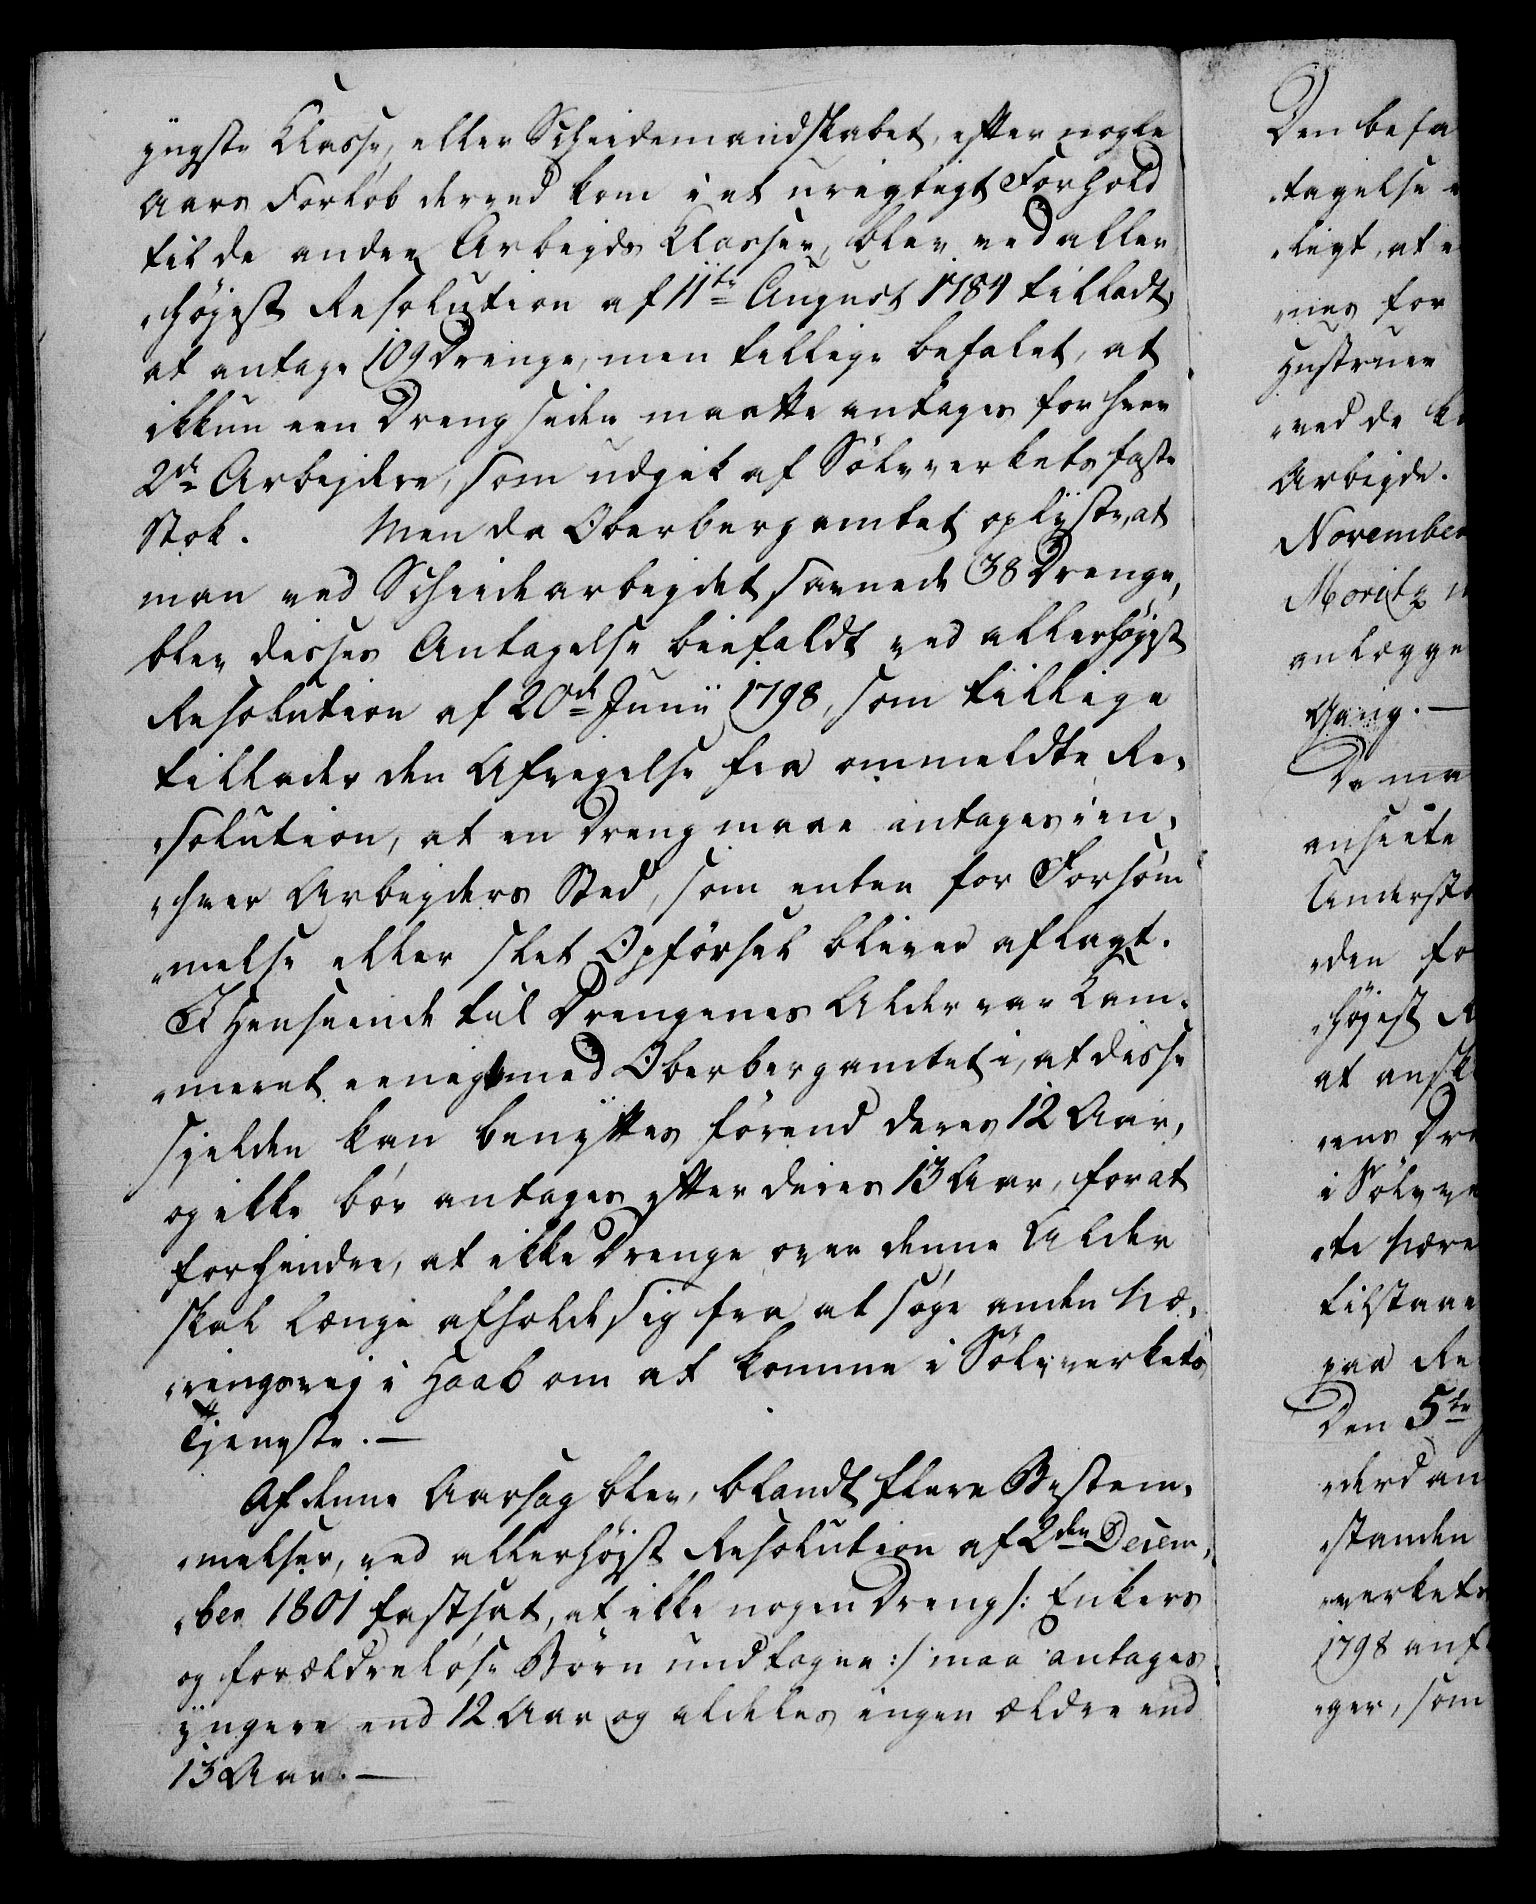 yngste Klasse, eller Scheidemandskabet, efter nogle
Aars Forløb derved kom i et urigtigt Forhold
til de andre Arbejds Klasser, blev ved aller¬
„højest Resolution af 11te August 1784 tilladt,
at antage 109 Drenge, men tillige befalet, at
ikkun een Dreng siden maatte antages for hver
2de Arbejdere, som udgik af Sølvverkets faste
Stok. Men da Oberbergamtet oplyste, at
man ved Scheidearbejdet savnede 38 Drenge,
blev disses Antagelse biefaldt ved allerhøjest
Resolution af 20de Junii 1798, som tillige
tillader den Afvigelse fra ommeldte Re„
„solution, at en Dreng maae antages i en„
„hver Arbejders Sted, som enten for Forsøm
„melse eller slet Opførsel bliver aflagt.
I Henseende til Drengenes Alder var Kam„
„meret eenigt med Oberbergamtet i, at disse
sjelden kan benyttes førend deres 12 Aar,
og ikke bør antages efter deres 13 Aar, for at
forhindre, at ikke Drenge over denne Alder
skal længe afholde sig fra at søge anden Næ„
„ringsvej i Haab om at komme i Sølvverkets
Tjeneste. —
Af denne Aarsag blev, blandt flere Bestem„
„melser, ved allerhøjst Resolution af 2den Decem„
„ber 1801 fastsat, at ikke nogen Dreng /: Enkers
og forældreløse Børn undtagen :/ maa antages
yngere end 12 Aar og aldeles ingen ældre end
13 Aar. —
Den befa
„tagelse
„ligt, at
„nes for
Hustruer
„ved de
Arbejde.
November
Moritz
anlægge
Gang. —
Da ma
ansiete
Underst
„den fo
„højest R
at ansk
„ens Dr
i Sølvve
„te være
tilstaae
paa Re
Den 5te
„derd an
„standen
„verkets
1798 anf
„ger, som